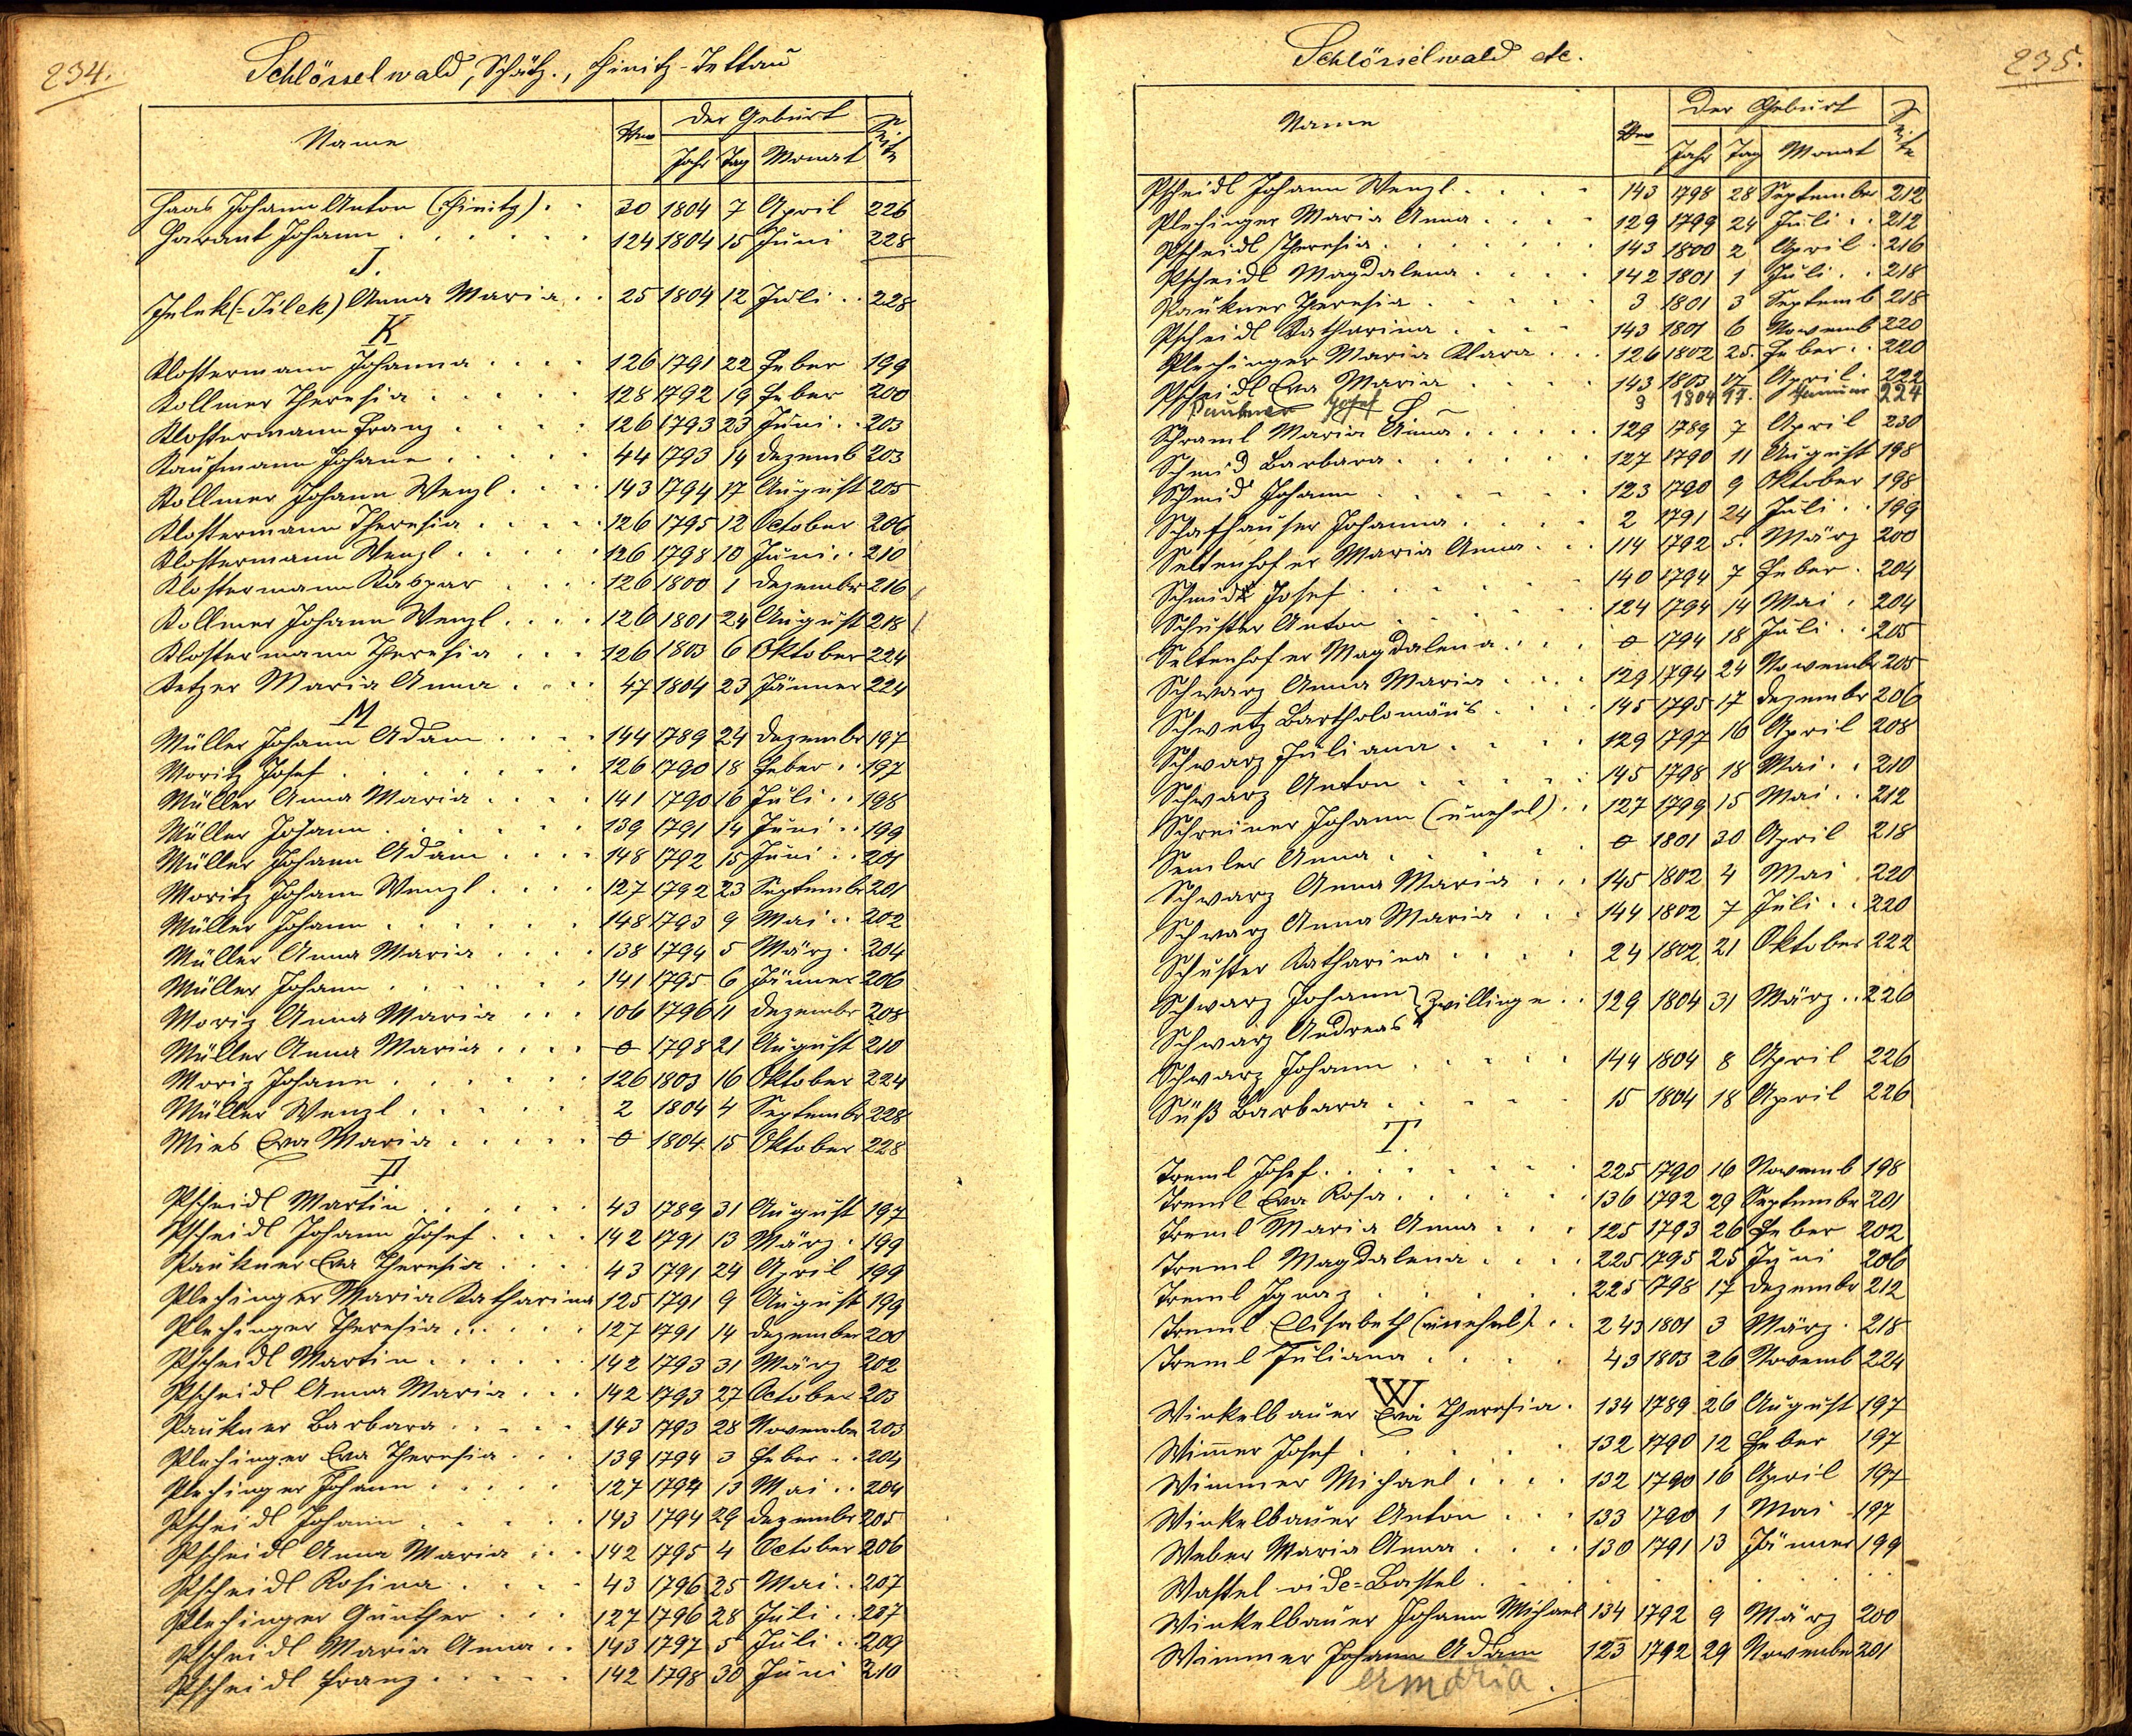 234.
Schlösselwald, Schätz., Hinitz-Tettau
Name Nro der Geburt Seite
Jahr Tag Monat
Haas Johann Anton (Hinitz) . . 30 1804 7 April 226
Harant Johann . . . . . . 124 1804 15 Juni 228
J.
Jelek (=Jilek) Anna Maria . . 25 1804 12 Juli . . 228
K
Klostermann Johanna . . . . 126 1791 22 Feber 199
Kollmer Theresia . . . . . 128 1792 19 Feber 200
Klostermann Franz . . . . 126 1793 23 Juni . . 203
Kaufmann Johann . . . . . 44 1793 14 Dezemb 203
Kollmer Johann Wenzl . . . 143 1794 17 August 205
Klostermann Theresia . . . . 126 1795 12 October 206
Klostermann Wenzl . . . . . 126 1798 10 Juni . . 210
Klostermann Kaspar . . . 126 1800 1 Dezember 216
Kollmer Johann Wenzl . . . . 126 1801 24 August 218
Klostermann Theresia . . . 126 1803 6 Oktober 224
Ketzer Maria Anna . . . . 47 1804 23 Jänner 224
M
Müller Johann Adam . . . . 144 1789 24 Dezembr 197
Moritz Josef . . . . . . . 126 1790 18 Feber . . 197
Müller Anna Maria . . . . 141 1790 16 Juli . . 198
Müller Johann . . . . . . 139 1791 14 Juni . . 199
Müller Johann Adam . . . . 148 1792 15 Juni . . 201
Moritz Johann Wenzl . . . . 127 1792 23 Septembr 201
Müller Johann . . . . . . 148 1793 9 Mai . . 202
Müller Anna Maria . . . . 138 1794 5 März . 204
Müller Johann . . . . . . 141 1795 6 Jänner 206
Moriz Anna Maria . . . 106 1796 11 Dezembr 208
Müller Anna Maria . . . . 0 1798 21 August 210
Moriz Johann . . . . . . 126 1803 16 Oktober 224
Müller Wenzl . . . . . 2 1804 4 Septembr 228
Mies Eva Maria . . . . . 0 1804 15 Oktober 228
P
Pscheidl Martin . . . . . . 43 1789 31 August 197
Pscheidl Johann Josef . . . . 142 1791 13 März . 199
Paukner Eva Theresia . . . 43 1791 24 April 199
Plechinger Maria Katharina 125 1791 9 August 199
Plechinger Theresia . . . . . 127 1791 14 Dezember 200
Pscheidl Martin . . . . . 142 1793 31 März 202
Pscheidl Anna Maria . . . 142 1793 27 October 203
Paukner Barbara . . . . . 143 1793 28 Novembr 203
Plechinger Eva Theresia . . . 139 1794 3 Feber . . 204
Plechinger Johann . . . . . 127 1794 13 Mai . . 204
Pscheidl Johann . . . . . 143 1794 29 Dezembr 205
Pscheidl Anna Maria . . . 142 1795 4 October 206
Pscheidl Rosina . . . . 43 1796 25 Mai . . 207
Plechinger Günther . . . 127 1796 28 Juli . . 207
Pscheidl Maria Anna . . 143 1797 5 Juli . . 209
Pscheidl Franz . . . . . 142 1798 30 Juni 210
Schlösselwald etc.
235.
Name Nro Der Geburt Seite
Jahr Tag Monat
Pscheidl Johann Wenzl . . . . 143 1798 28 September 212
Plechinger Maria Anna . . . . 129 1799 24 Juli . . 212
Pscheidl Theresia . . . . . . 143 1800 2 April . 216
Pscheidl Magdalena . . . . 142 1801 1 Juli . . 218
Paukner Theresia . . . . . 3 1801 3 Septemb 218
Pscheidl Katharina . . . . 143 1801 6 Novemb 220
Plechinger Maria Klara . . . 126 1802 25. Feber . . 220
Pscheidl Eva Maria . . . . 143 1803 17 April . 222
Paukner Josef 3 1804 17. Januar 224
S
Schraml Maria Anna . . . . . 129 1789 7 April 230
Schmid Barbara . . . . . . 127 1790 11 August 198
Schmid Johann . . . . . . 123 1790 9 Oktober 198
Schafhauser Johanna . . . . 2 1791 24 Juli . . 199
Seltenhofer Maria Anna . . . 114 1792 5. März 200
Schmidt Josef . . . . . . 140 1794 7 Feber . 204
Schuster Anton . . . . . 124 1794 14 Mai . 204
Seltenhofer Magdalena . . . . 0 1794 18 Juli . . 205
Schwarz Anna Maria . . . . 129 1794 24 Novembr 205
Schwetz Bartholomäus . . . . 145 1795 17 Dezembr 206
Schwarz Juliana . . . . . 129 1797 16 April 208
Schwarz Anton . . . . . . 145 1798 18 Mai . . 210
Schreiner Johann (unehel) . . 127 1799 15 Mai . . 212
Semler Anna . . . . . . 0 1801 30 April 218
Schwarz Anna Maria . . . 145 1802 4 Mai . 220
Schwarz Anna Maria . . . . 144 1802 7 Juli . . 220
Schuster Katharina . . . . 24 1802 21 Oktober 222
Schwarz Johann } Zwillinge . . 129 1804 31 März . . 226
Schwarz Andreas
Schwarz Johann . . . . . 144 1804 8 April 226
Süß Barbara . . . . . 15 1804 18 April 226
T.
Treml Josef . . . . . . . 225 1790 16 Novemb 198
Treml Eva Rosa . . . . . . 136 1792 29 Septembr 201
Treml Maria Anna . . . . 125 1793 26 Feber 202
Treml Magdalena . . . . 225 1795 25 Juni 206
Treml Ignaz . . . . . . 225 1798 17 Dezembr 212
Treml Elisabeth (unehel) . . 243 1801 3 März . 218
Treml Juliana . . . . . 43 1803 26 Novemb 224
W
Winkelbauer Eva Theresia . 134 1789 26 August 197
Wimmer Josef . . . . . . 132 1790 12 Feber 197
Wimmer Michael . . . . 132 1790 16 April 197
Winkelbauer Anton . . . 133 1790 1 Mai 197
Weber Maria Anna . . . . 130 1791 13 Jänner 199
Wastel vide=Bastel . . . . .
Winkelbauer Johann Michael 134 1792 9 März 200
Wimmer Johann Adam 123 1792 29 November 201
ermaria